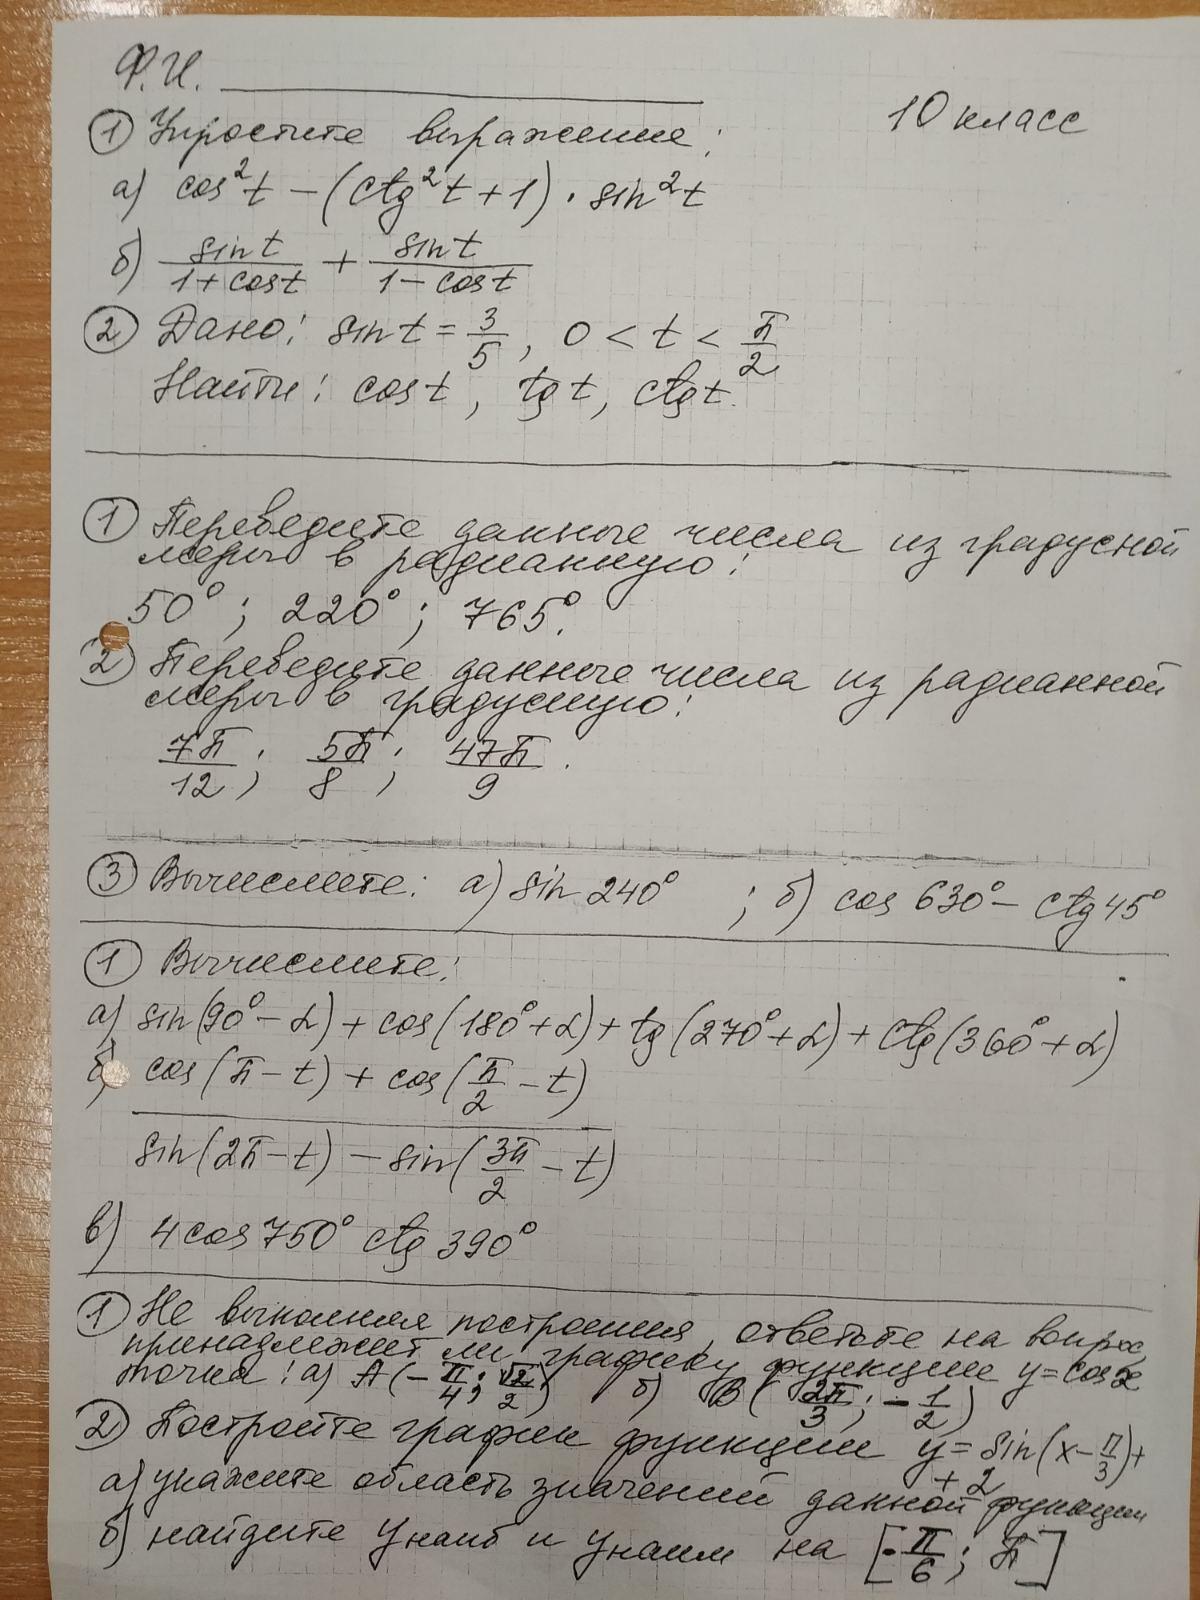 Ф.И. ____________
10 класс
① Упростите выражение:
а) cos²t − (ctg²t + 1) · sin²t
б) sin t / (1 + cos t) + sin t / (1 − cos t)
② Дано: sin t = 3/5, 0 < t < π/2
Найти: cos t, tg t, ctg t.
① Переведите данные числа из градусной
меры в радианную:
50°; 220°; 765°.
② Переведите данные числа из радианной
меры в градусную:
7π/12; 5π/8; 47π/9.
③ Вычислите: а) sin 240° ; б) cos 630° − ctg 45°
① Вычислите:
а) sin(90° − α) + cos(180° + α) + tg(270° + α) + ctg(360° + α)
б) cos(π − t) + cos(π/2 − t)
sin(2π − t) − sin(3π/2 − t)
в) 4 cos 750° ctg 390°
① Не выполняя построения, ответьте на вопрос
принадлежит ли графику функции y = cos x
точка: а) A(−π/4; √2/2) б) B(2π/3; −1/2)
② Постройте график функции y = sin(x − π/3) +
+ 2
а) укажите область значений данной функции
б) найдите yнаиб и yнаим на [−π/6; π]